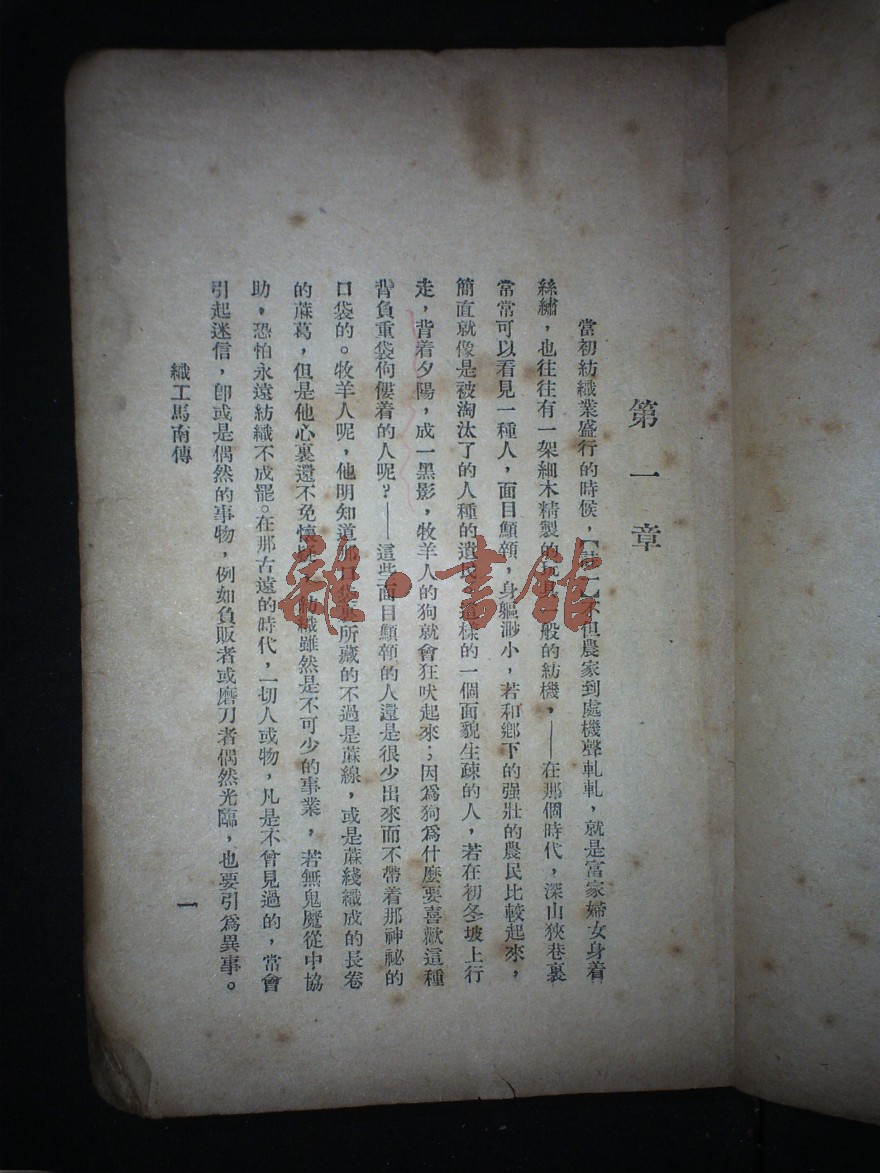 第一章
當初紡織業盛行的時候,不但農家到處機聲軋軋,就是富家婦女身着
絲繡,也往往有一架細木精製的般的紡機,——在那個時代,深山狹巷裏
常常可以看見一種人,面目顦顇,身軀渺小,若和鄉下的强壯的農民比較起來,
簡直就像是被淘汰了的人種的遺民這樣的一個面貌生疎的人,若在初冬坡上行
走,背着夕陽,成一黑影,牧羊人的狗就會狂吠起來;因爲狗爲什麼要喜歡這種
背負重袋佝僂着的人呢?——這些面目顦顇的人還是很少出來而不帶着那神祕的
口袋的。牧羊人呢,他明知道那口袋所藏的不過是蔴線,或是蔴綫織成的長卷
的蔴葛,但是他心裏還不免懷疑紡織雖然是不可少的事業,若無鬼魔從中協
助,恐怕永遠紡織不成罷。在那古遠的時代,一切人或物,凡是不曾見過的,常會
引起迷信,卽或是偶然的事物,例如負販者或磨刀者偶然光臨,也要引爲異事。
織工馬南傳
一
雜·書館